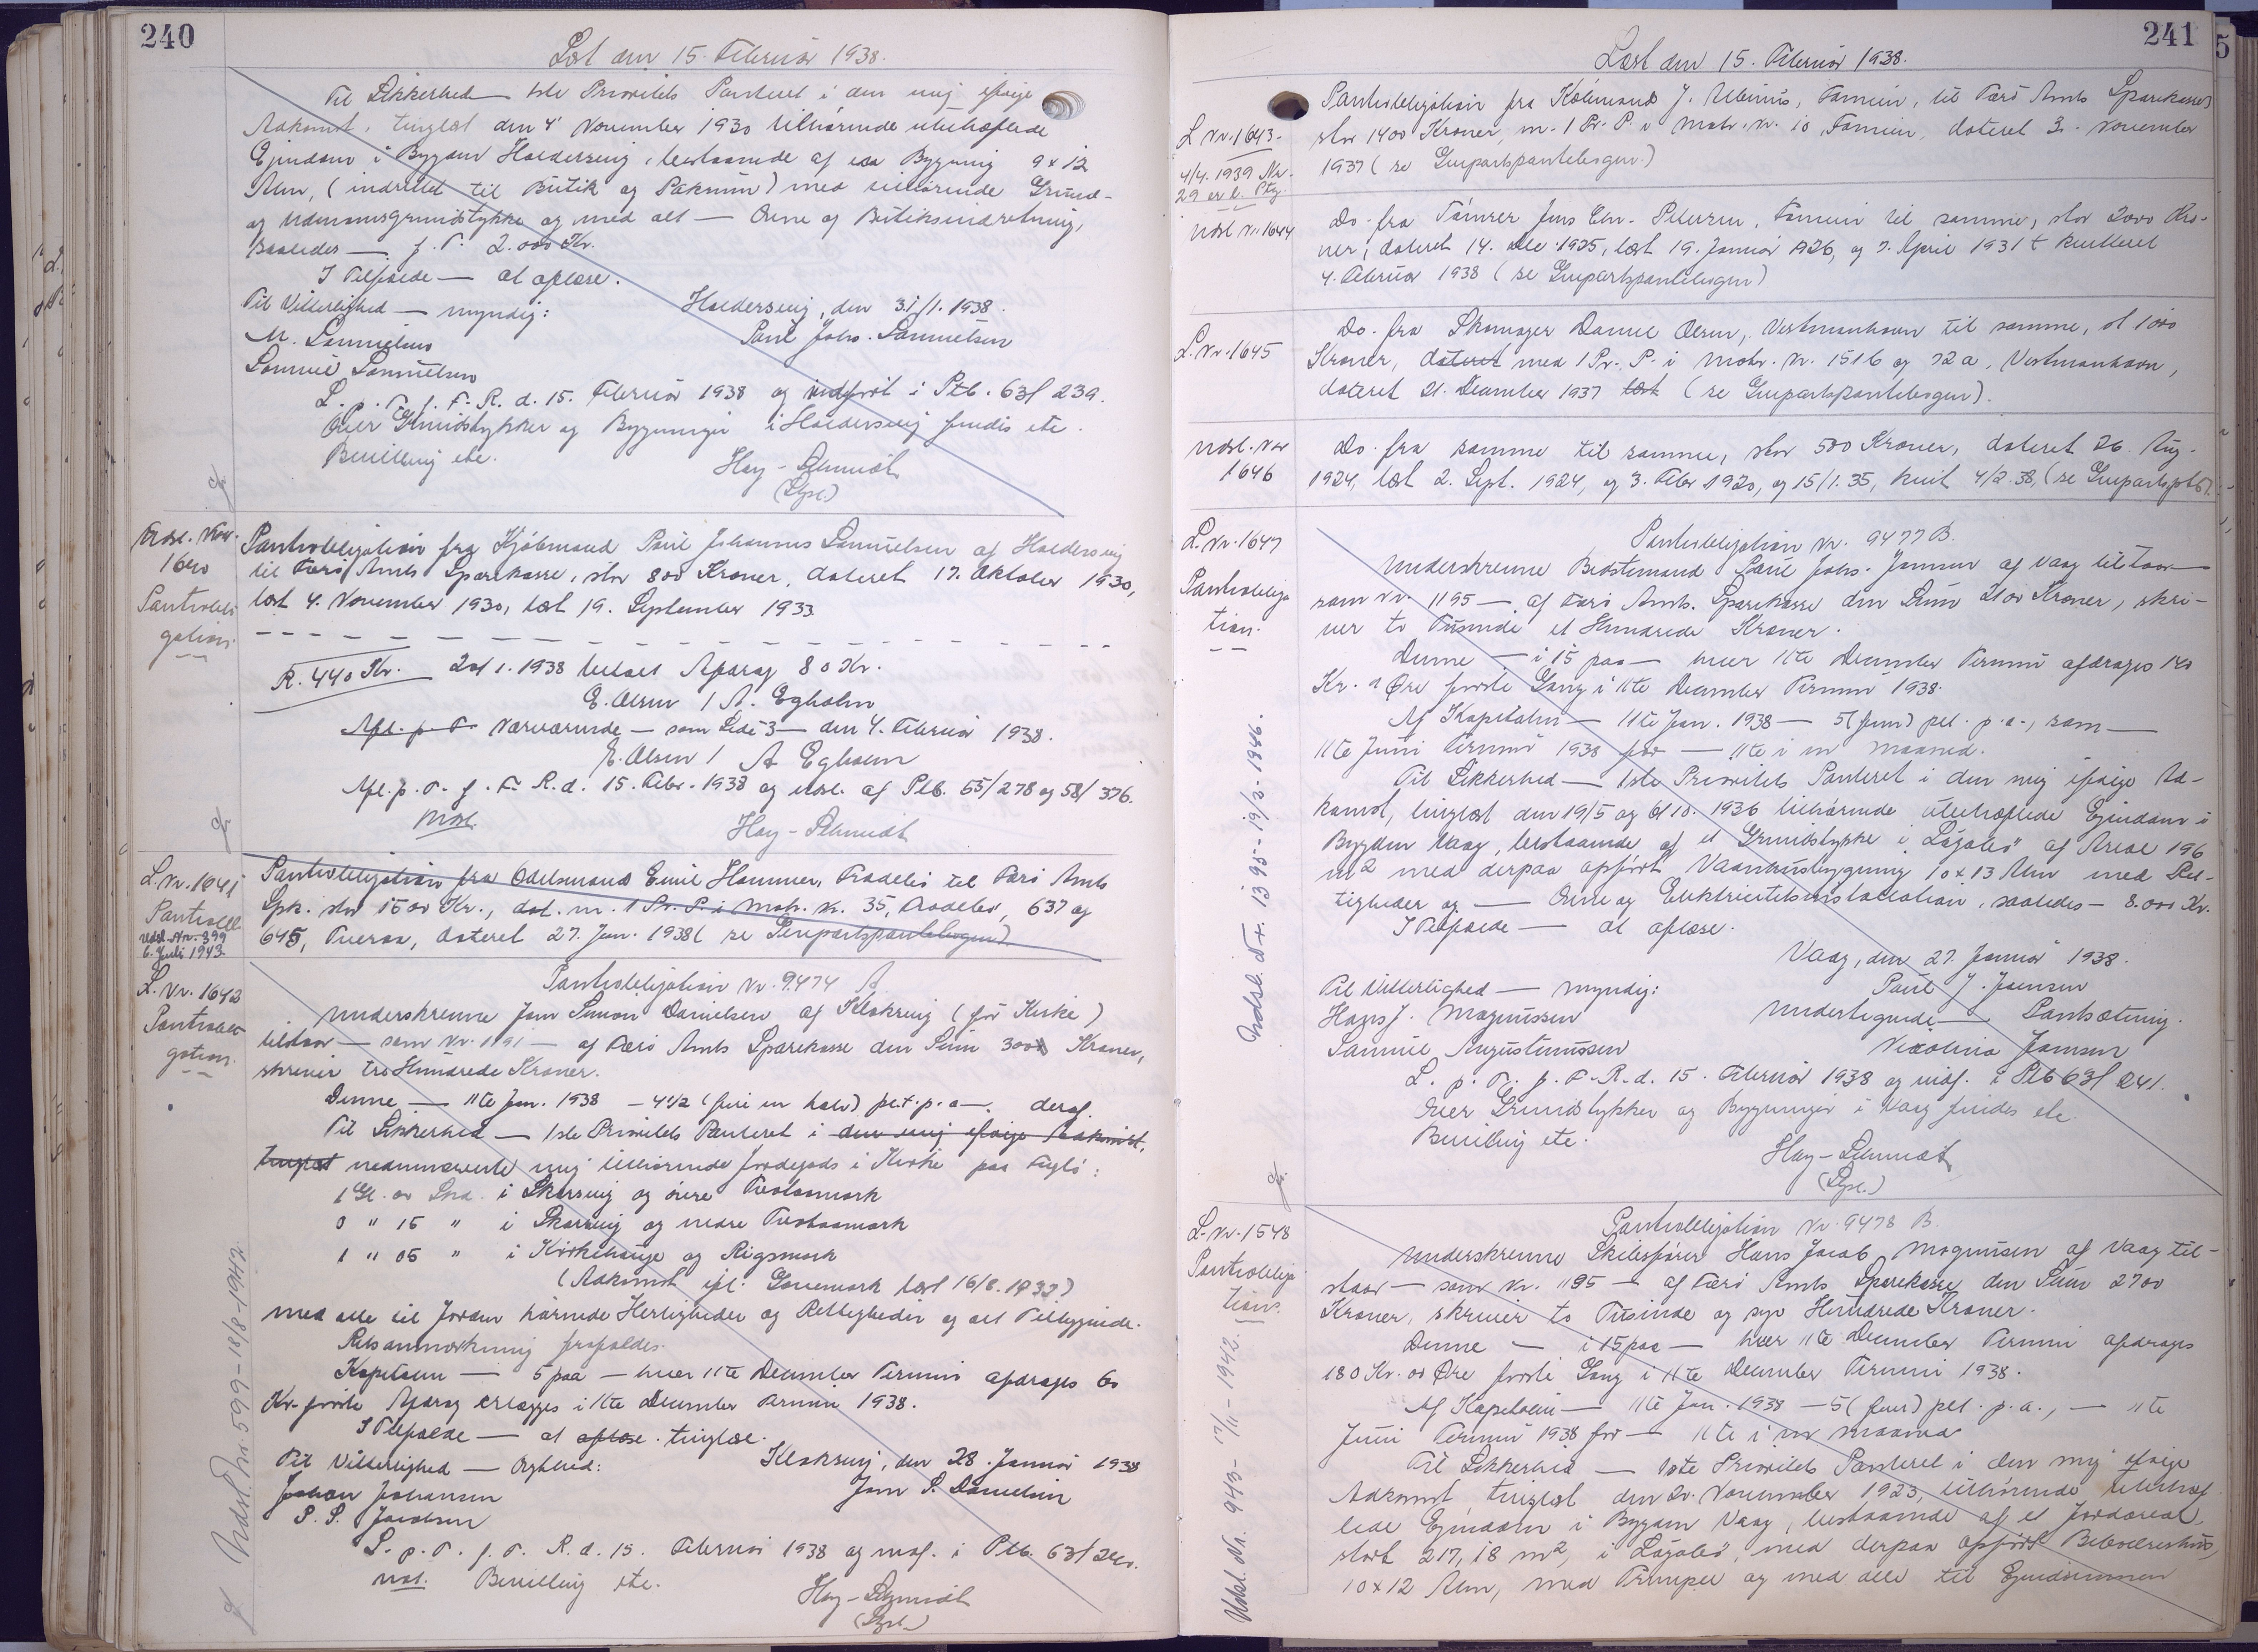 240
Læst den 15. Februar 1938.
Til Sikkerhed — 1ste Prioritets Panteret i den mig ifølge
Adkomst, tinglæst den 4' November 1930 tilhørende ubehæftede
Ejendom i Bygden Haldersvig, bestaaende af en Bygning 9 x 12
Alen, (indrettet til Butik og Pakrum) med tilhørende Grund-
og Udmarksgrundstykke og med alt — Ovne og Butiksindretning,
saaledes — f. T. 2.000 Kr.
I Tilfælde — at aflæse.
Til Vitterlighed — myndig:
Haldersvig, den 31/1. 1938.
M. Samuelsen
Paul Johs. Samuelsen
Samuel Samuelsen
L. p. T. f. F. R. d. 15. Februar 1938 og indført i Ptb. 63/239.
Over Grundstykker og Bygninger i Haldersvig findes etc.
Bevilling etc.
Hay-Schmidt
(Lysl.)
Udsl. Nr.
1640
Pantobli-
gation.
Pantobligation fra Kjøbmand Paul Johannes Samuelsen af Haldersvig
til Færø Amts Sparekasse, stor 800 Kroner, dateret 17. Oktober 1930,
læst 4. November 1930, læst 19. September 1933
R. 440 Kr. 20/1. 1938 betalt Afdrag 80 Kr.
E. Olsen / A. Egholm
Afl. p. T. Nærværende — som Side 3 — den 4. Februar 1938.
E. Olsen / A Egholm
Afl. p. T. f. F. R. d. 15. Febr. 1938 og udsl. af Ptb. 55/278 og 58/376.
Udsl.
Hay-Schmidt
L. Nr. 1641
Pantobl
Udsl. Nr. 399
6. Juli 1943
Pantobligation fra Odelsmand Emil Hammer, Tradebø til Færø Amts
Spk. stor 1500 Kr., dat. m. 1 Pr. P. i Matr. N. 35, Tradebø, 637 og
645, Tveraa, dateret 27. Jan. 1938 (se Genpartspantebogen)
L. Nr. 1642
Pantobli-
gation.
Pantobligation Nr. 9474 A.
Underskrevne Jom Simon Danielsen af Klaksvig (før Kirke)
tilstaar — som Nr. 1191 — af Færø Amts Sparekasse den Sum 300 Kroner,
skriver tre Hundrede Kroner.
Denne — 11te Jan. 1938 — 4 1/2 (fire en halv) pct. p. a. —. deraf.
Til Sikkerhed — 1ste Prioritets Panteret i den mig ifølge Adkomst,
tinglæst nedennævnte mig tilhørende Jordegods i Kirke paa Fuglø:
1 Gl. 00 Skd. i Skarsvig og øvre Tvotaamark
0 " 15 " i Skarsvig og nedre Tvotaamark
1 " 05 " i Kirkehauge og Rigsmark
(Adkomst ifl. Gavemark læst 16/8. 1932)
med alle til Jorden hørende Herligheder og Rettigheder og alt Tilliggende.
Retsanmærkning frafaldes.
Kapitalen — 5 paa — hver 11te December Termin afdrages 60
Kr. første Afdrag erlægges i 11te December Termin 1938.
I Tilfælde — at aflæse. tinglæse.
Til Vitterlighed — Ægthed:
Klaksvig, den 28. Januar 1938
Johan Johansen
Jom S. Danielsen
P. S. Jacobsen
L. p. T. f. F. R. d. 15. Februar 1938 og indf. i Ptb. 63/240.
Udsl. Bevilling etc.
Hay-Schmidt
(Lysl.)
Udsl. Nr. 599 - 18/8 - 1942.
241
Læst den 15. Februar 1938.
L. Nr. 1643.
4/4. 1939 Nr.
29 er l. Ptg.
Pantobligation fra Købmand J. Ulbinus, Famien, til Færø Amts Sparekasse
stor 1400 Kroner, m. 1 Pr. P. i Matr. N. 10, Famien, dateret 3. November
1937 (se Genpartspantebogen.)
Udsl. Nr. 1644
Do. fra Tømrer Jens Chr. Petersen, Famien til samme, stor 2000 Kro-
ner, dateret 14. Dec 1925, læst 19. Januar 1926, og 7. April 1931 + kvitteret
4. Februar 1938 (se Genpartspantebogen)
L. Nr. 1645
Do. fra Skomager Daniel Olsen, Vestmanhavn til samme, st 1000
Kroner, dateret med 1 Pr. P. i Matr. Nr. 151b og 72a, Vestmanhavn,
dateret 21. December 1937 læst (se Genpartspantebogen).
Udsl. Nr
1646
Do. fra samme til samme, stor 500 Kroner, dateret 26. Aug.
1924, læst 2. Sept. 1924, og 3. Febr 1920, og 15/1. 35, kvit 4/2. 38, (se Genpartsptb).
L. Nr. 1647
Pantobliga
tion.
Pantobligation Nr. 9477 B.
Underskrevne Bedstemand Paul Johs. Jensen af Vaag tilstaar —
som Nr. 1195 — af Færø Amts. Sparekasse den Sum 2100 Kroner, skri-
ver to Tusinde et Hundrede Kroner.
Denne — i 15 paa — hver 11te December Termin afdrages 140
Kr. " Øre første Gang i 11te December Termin 1938.
Af Kapitalen — 11te Jan. 1938 — 5 (fem) pct. p. a., som —
11te Juni Termin 1938 for — 11te i en Maaned.
Til Sikkerhed — 1ste Prioritets Panteret i den mig ifølge Ad-
komst, tinglæst den 19/5 og 6/10. 1936 tilhørende ubehæftede Ejendom i
Bygden Vaag, bestaaende af et Grundstykke i "Lágabø" af Areal 196
m2 med derpaa opført Vaanhusbygning 10 x 13 Alen med Ret-
tigheder og — Ovne og Elektricitetsinstallation, saaledes — 8.000 Kr.
I Tilfælde — at aflæse.
Vaag, den 27. Januar 1938.
Til Vitterlighed — myndig:
Paul J. Joensen
Hans J. Magnussen
Undertegnede — Pantsætning.
Samuel Augustinussen
Nicolina Joensen
L. p. T. f. F. R. d. 15. Februar 1938 og indf. i Ptb 63/241.
Over Grundstykker og Bygninger i Vaag findes etc.
Bevilling etc.
Hay-Schmidt
(Lysl.)
Udsl. Nr. 1395 - 19/3 - 1946.
L. Nr. 1548
Pantobliga
tion.
Pantobligation Nr. 9478 B.
Underskrevne Skibsfører Hans Jacob Magnussen af Vaag til-
staar — som Nr. 1195 — af Færø Amts Sparekasse den Sum 2700
Kroner, skriver to Tusinde og syv Hundrede Kroner.
Denne — i 15 paa — hver 11te December Termin afdrages
180 Kr. 00 Øre første Gang i 11te December Termin 1938.
Af Kapitalen — 11te Jan. 1938 — 5 (fem) pct. p. a., — 11te
Juni Termin 1938 for — 11te i en Maaned
Til Sikkerhed — 1ste Prioritets Panteret i den mig ifølge
Adkomst, tinglæst den 20. November 1923, tilhørende ubehæf
tede Ejendom i Bygden Vaag, bestaaende af et Jordareal,
stort 217,18 m2, i Lágabø, med derpaa opført Beboelseshus,
10 x 12 Alen, med Trempel og med alle til Ejendommen
Udsl. Nr. 943 - 17/11 - 1942.